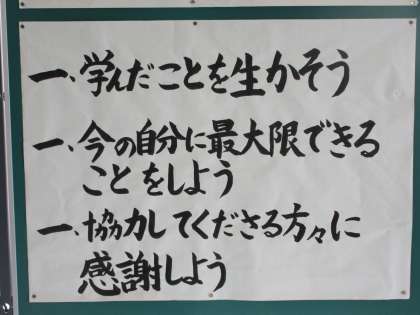 一、学んだことを生かそう
一、今の自分に最大限できる
ことをしよう
一、協力してくださる方々に
感謝しよう